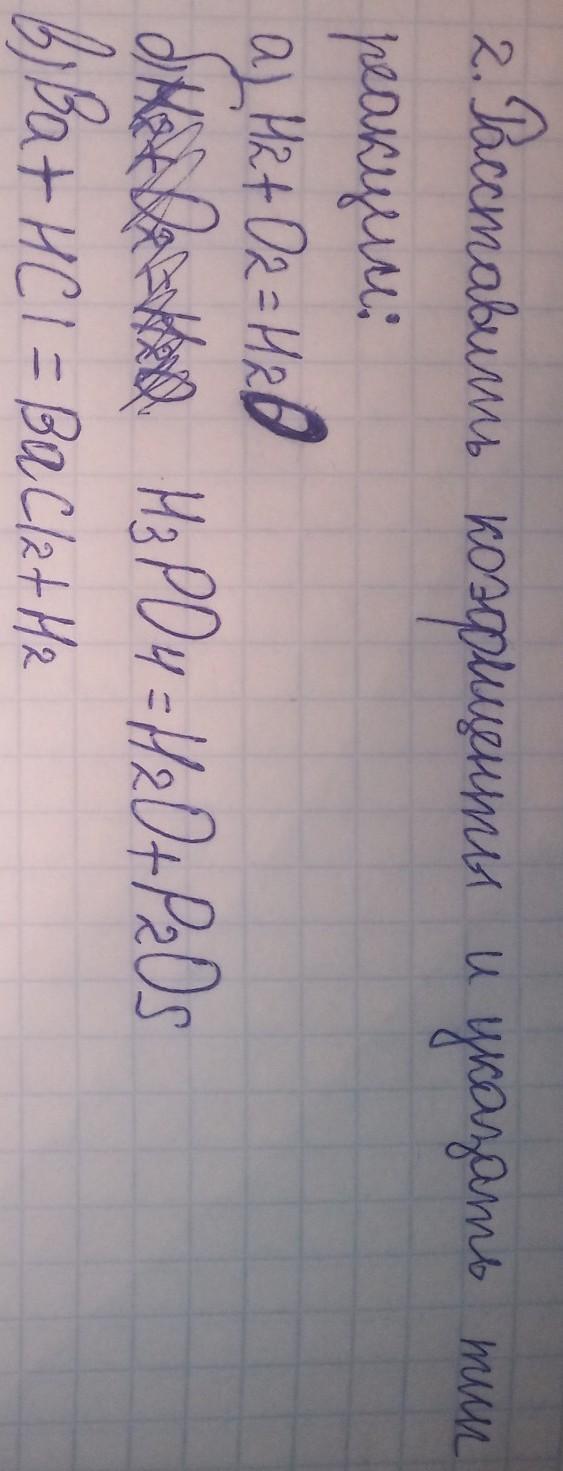 2. Расставить коэфициенты и указать тип
реакции:
а) H2 + O2 = H2O
б) H3PO4 = H2O + P2O5
в) Ba + HCl = BaCl2 + H2